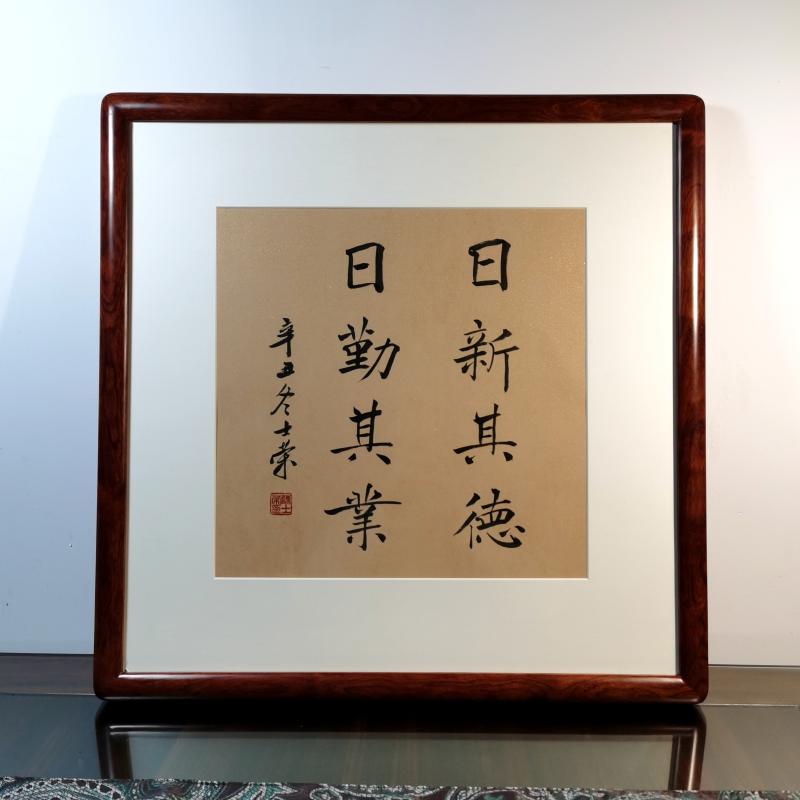 日新其徳
日勤其業
辛丑冬士荣